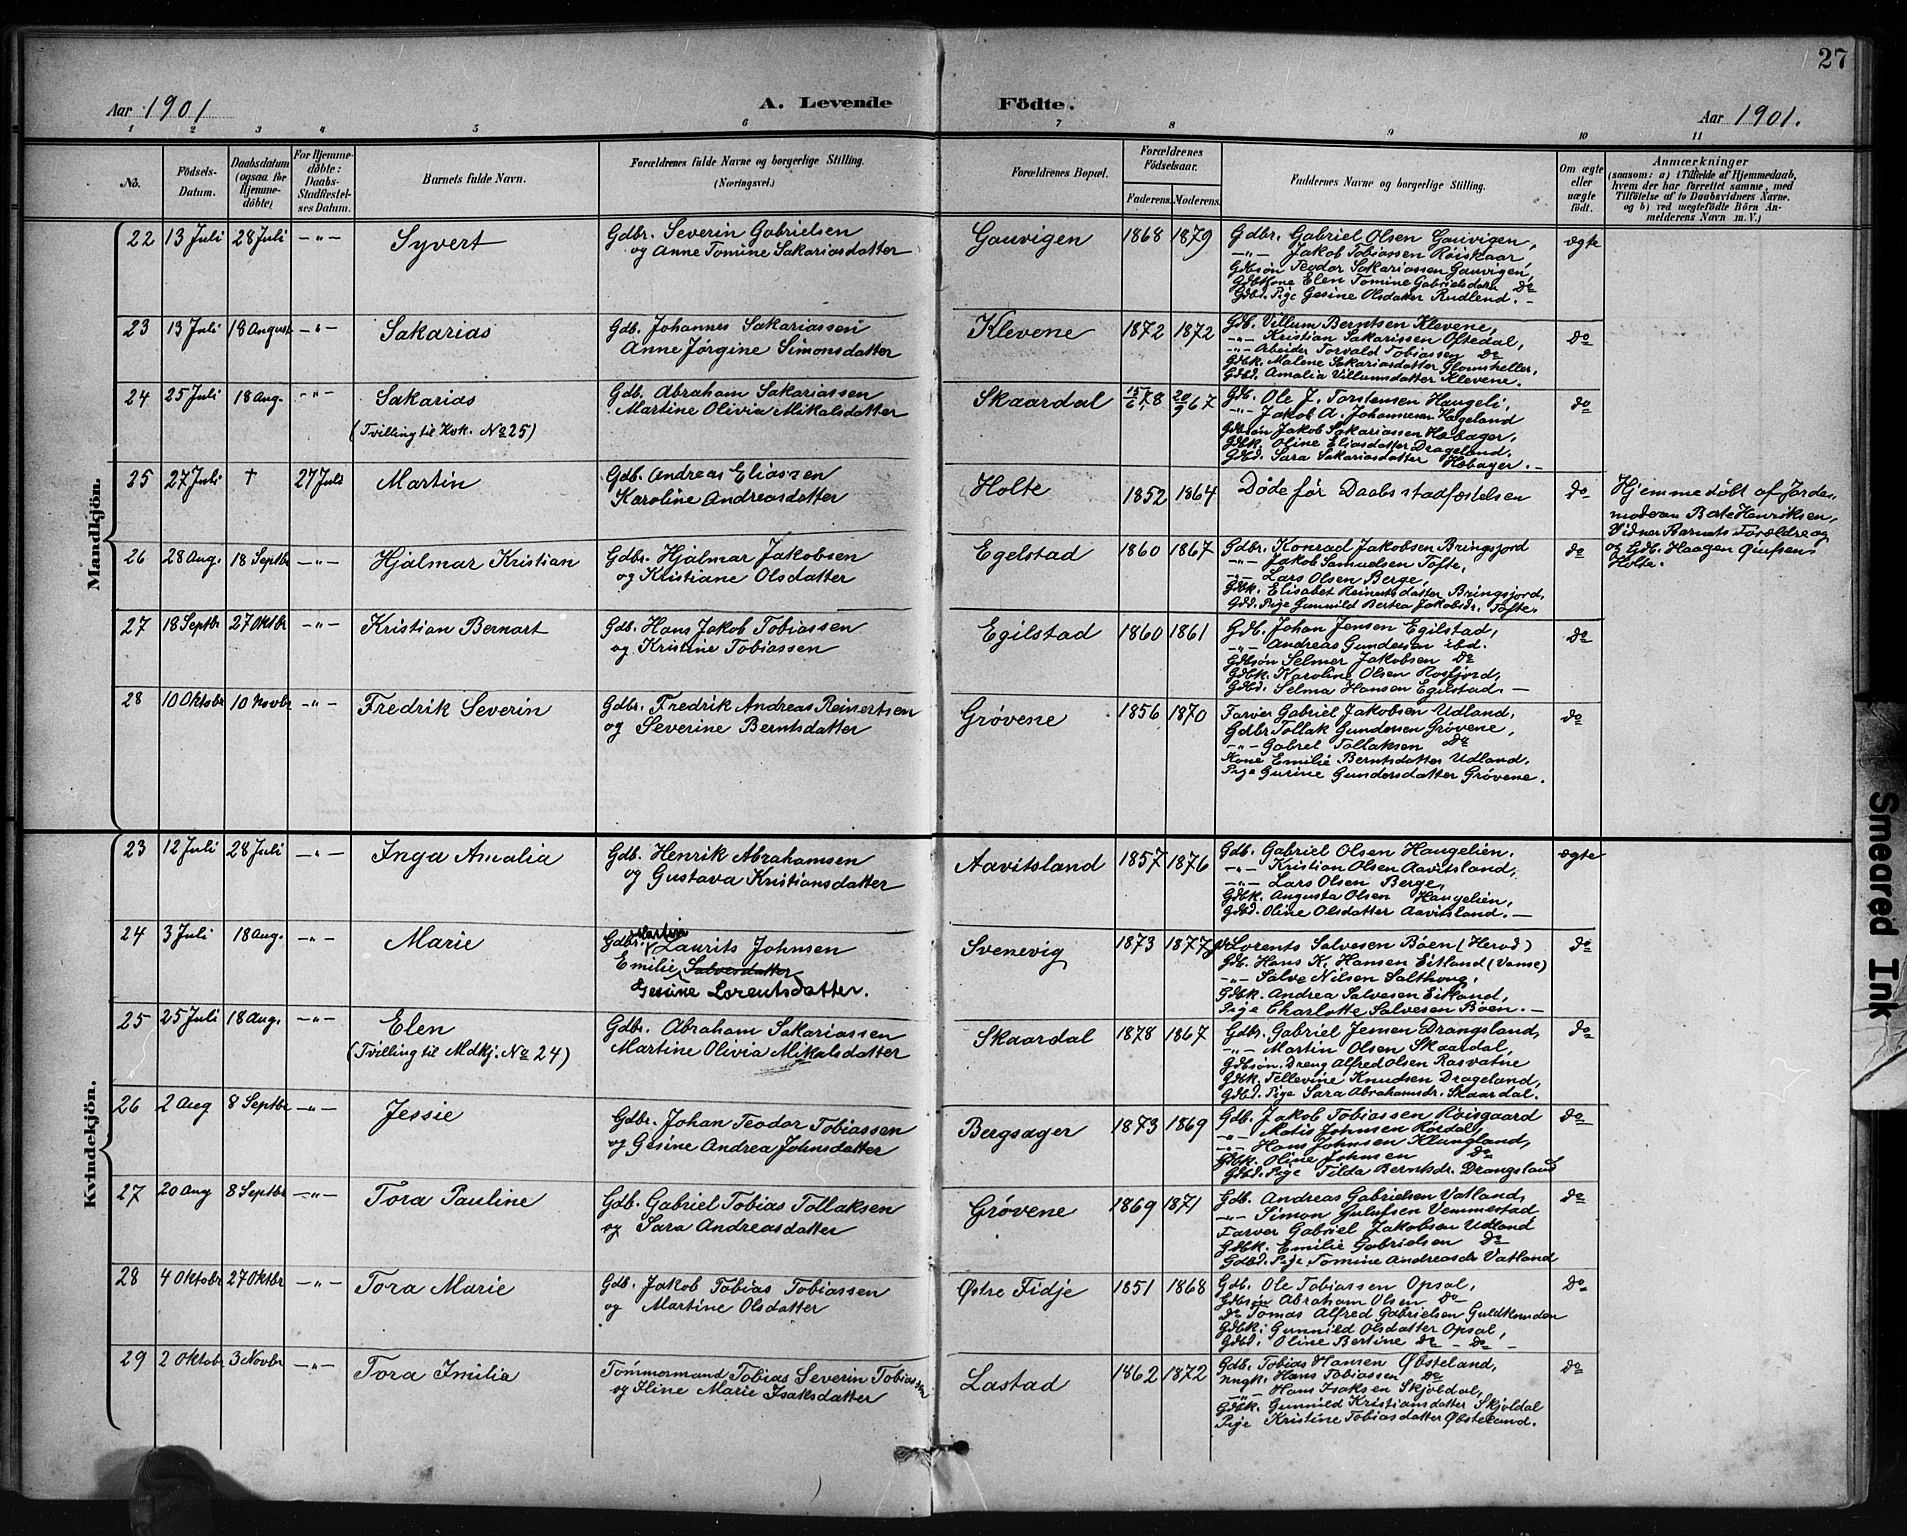 27
Aar 1901
A. Levende Födte.
Aar 1901.
1 2 3 4 5 6 7 8 9 10 11
No.
Födsels-Datum.
Daabsdatum (ogsaa for Hjemme-döbte)
For Hjemme-döbte: Daabs-Stadfæstel-ses Datum.
Barnets fulde Navn.
Forældrenes fulde Navne og borgerlige Stilling.
(Næringsvei.)
Forældrenes Bopæl.
Forældrenes Födselsaar.
Faderens. Moderens.
Faddernes Navne og borgerlige Stilling.
Om ægte eller uægte födt.
Anmærkninger
(saasom: a) i Tilfælde af Hjemmedaab,
hvem der har forrettet samme, med
Tilföielse af to Daabsvidners Navne.
og b) ved uægtefödte Börn An-
melderens Navn m. V.)
Mandkjön.
22 13 Juli 28 Juli -"- Syvert
Gdbr. Severin Gabrielsen
og Anne Tomine Sakariasdatter
Gauvigen 1868 1879
Gdbr. Gabriel Olsen Gauvigen,
-"- Jakob Tobiassen Røiskaar
Gdbsøn Teodor Sakariassen Gauvigen,
Gdbkone Elen Tomine Gabrielsdatr do
Gdbd. Pige Gesine Olsdatter Rudlend. -
ægte
23 13 Juli 18 August -"- Sakarias
Gdb. Johannes Sakariassen
Anne Jørgine Simonsdatter
Klevene 1872 1872
Gdb. Villum Berntsen Klevene,
-"- Kristian Sakarissen Oftedal,
-"- Arbeider Torvald Tobiassen do
Gdbk. Malene Sakariasdatter Glomsheller,
Gdbd. Amalia Villumsdatter Klevene.
do
24 25 Juli 18 Aug. -"- Sakarias
(Tvilling til Kvk. No 25)
Gdb. Abraham Sakariassen
Martine Olivia Mikalsdatter
Skaardal 15/6 78 20/9 67
Gdb. Ole J. Torstensen Haugeli,
-"- Jakob A. Johannesen Hageland
Gdbsøn Jakob Sakariassen Høbager,
Gdbk. Oline Eliasdatter Drageland.
Gdbd. Sara Sakariasdatter Høbager. -
do
25 27 Juli † 27 Juli Martin
Gdb. Andreas Eliassen
Karoline Andreasdatter
Holte 1852 1864
Døde før Daabsstadfæstelsen
do
Hjemmedøbt af Jorde-
moderen Berte Henriksen,
Vidner Barnets Forældre og
og Gdb. Haagen Øiufsen
Holte.
26 28 Aug. 18 Septbr -"- Hjalmar Kristian
Gdbr. Hjalmar Jakobsen
og Kristiane Olsdatter
Egelstad 1860 1867
Gdbr. Konrad Jakobsen Bringsjord
-"- Jakob Samuelsen Tofte,
-"- Lars Olsen Berge,
Gdbk. Elisabet Reinertsdatter Bringsjord,
Gdbd. Pige Gunnild Bertea Jakobsdr. Tofte.
do
27 18 Septbr 27 Oktbr -"- Kristian Bernart
Gdb. Hans Jakob Tobiassen
og Kristine Tobiassen
Egilstad 1860 1861
Gdb. Johan Jensen Egilstad,
-"- Andreas Gundersen ibd.
Gdbsøn Selmer Jakobsen do
Gdbk. Karoline Olsen Rosfjord,
Gdbd. Selma Hansen Egilstad. -
do
28 10 Oktobr 10 Novbr -"- Fredrik Severin
Gdbr. Fredrik Andreas Reinertsen
og Severine Berntsdatter
Grøvene 1856 1870
Farver Gabriel Jakobsen Udland,
Gdbr Tollak Gundersen Grøvene,
-"- Gabriel Tollaksen do
Kone Emilie Berntsdatter Udland,
Pige Gurine Gundersdatter Grøvene.
do
Kvindekjön.
23 12 Juli 28 Juli -"- Inga Amalia
Gdb. Henrik Abrahamsen
og Gustava Kristiansdatter
Aavitsland 1857 1876
Gdb. Gabriel Olsen Haugelien.
-"- Kristian Olsen Aavitsland,
-"- Lars Olsen Berge,
Gdbk. Augusta Olsen Haugelien,
Gdbd. Oline Olsdatter Aavitsland. -
ægte
24 3 Juli 18 Aug. -"- Marie
Martin
Gdbr. Laurits Johnsen
Emilie Salvesdatter
Gesine Lorentsdatter.
Svenevig 1873 1877
Lorents Salvesen Bøen (Herod)
Gdb. Hans K. Hansen Eitland (Vanse)
-"- Salve Nilsen Salthoug,
Gdbk. Andrea Salvesen Eitland,
Pige Charlotte Salvesen Bøen. -
do
25 25 Juli 18 Aug. -"- Elen
(Tvilling til Mdkj. No 24)
Gdbr. Abraham Sakariassen
Martine Olivia Mikalsdatter
Skaardal 1878 1867
Gdbr. Gabriel Jensen Drangsland,
-"- Martin Olsen Skaardal
Gdbsøn. Dreng Alfred Olsen Rasvatne
Gdbk. Tellevine Knudsen Drageland,
Gdbd. Pige Sara Abrahamsdr. Skaardal.
do
26 2 Aug 8 Septbr -"- Jessie
Gdbr. Johan Teodor Tobiassen
og Gesine Andrea Johnsdatter
Bergsager 1873 1869
Gdb. Jakob Tobiassen Røisgaard
-"- Matis Johnsen Rørdal,
-"- Hans Johnsen Klungland,
Gdbk. Oline Johnsen do
Gdbd. Pige Tilda Berntsdr. Drangsland
do
27 20 Aug 8 Septbr -"- Tora Pauline
Gdb. Gabriel Tobias Tollaksen
og Sara Andreasdatter
Grøvene 1869 1871
Gdb. Andreas Gabrielsen Vatland,
-"- Simon Gulufsen Vemmestad
Farver Gabriel Jakobsen Udland
Gdbk. Emilie Gabrielsen do
Gdbd. Pige Tomine Andreasdr Vatland
do
28 4 Oktobr 27 Oktbr -"- Tora Marie
Gdb. Jakob Tobias Tobiassen
og Martine Olsdatter
Østre Fidje 1851 1868
Gdb. Ole Tobiassen Opsal,
Gdbsøn Abraham Olsen do
do Tomas Alfred Gabrielsen Guldknuden
Gdbk. Gunnild Olsdatter Opsal,
Gdbd. Oline Bertine do - do -
do
29 2 Oktobr 3 Novbr -"- Tora Imilia
Tømmermand Tobias Severin Tobiassen
og Iline Marie Isaksdatter
Lastad 1862 1872
Gdb. Tobias Hansen Øbsteland,
Ungk. Hans Tobiassen do
-"- Hans Isaksen Skjoldal,
Gdbk. Gunnild Kristiansdatter Skjoldal
Pige Kristine Tobiasdatter Øbsteland.
do
Smeared Ink